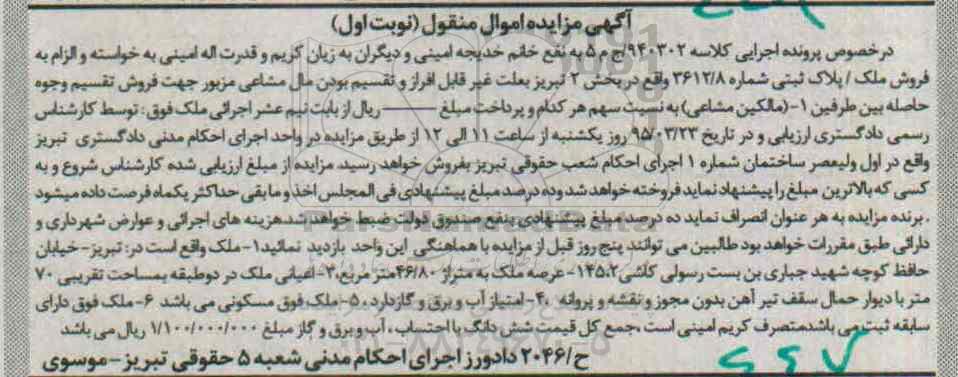 آگهی مزایده اموال منقول (نوبت اول)
درخصوص پرونده اجرایی کلاسه ۹۴۰۳۰۲/ج م ۵ به نفع خانم خدیجه امینی و دیگران به زیان کریم و قدرت اله امینی به خواسته و الزام به
فروش ملک / پلاک ثبتی شماره ۳۶۱۲/۸ واقع در بخش ۲ تبریز بعلت غیر قابل افراز و تقسیم بودن مال مشاعی مزبور جهت فروش تقسیم وجوه
حاصله بین طرفین ۱-(مالکین مشاعی) به نسبت سهم هر کدام و پرداخت مبلغ ——— ریال از بابت نیم عشر اجرائی ملک فوق: توسط کارشناس
رسمی دادگستری ارزیابی و در تاریخ ۹۵/۰۳/۲۳ روز یکشنبه از ساعت ۱۱ الی ۱۲ از طریق مزایده در واحد اجرای احکام مدنی دادگستری تبریز
واقع در اول ولیعصر ساختمان شماره ۱ اجرای احکام شعب حقوقی تبریز بفروش خواهد رسید. مزایده از مبلغ ارزیابی شده کارشناس شروع و به
کسی که بالاترین مبلغ را پیشنهاد نماید فروخته خواهد شد و ده درصد مبلغ پیشنهادی فی المجلس اخذ و مابقی حداکثر یکماه فرصت داده میشود
. برنده مزایده به هر عنوان انصراف نماید ده درصد مبلغ پیشنهادی بنفع صندوق دولت ضبط خواهد شد هزینه های اجرائی و عوارض شهرداری و
دارائی طبق مقررات خواهد بود طالبین می توانند پنج روز قبل از مزایده با هماهنگی این واحد بازدید نمائید ۱-ملک واقع است در: تبریز- خیابان
حافظ کوچه شهید جباری بن بست رسولی کاشی ۱۴۵،۲-عرصه ملک به متراژ ۴۶/۸۰متر مربع،۳-اعیانی ملک در دو طبقه بمساحت تقریبی ۷۰
متر با دیوار حمال سقف تیر آهن بدون مجوز و نقشه و پروانه ۴۰-امتیاز آب و برق و گاز دارد، ۵-ملک فوق مسکونی می باشد ۶-ملک فوق دارای
سابقه ثبت می باشد متصرف کریم امینی است ،جمع کل قیمت شش دانگ با احتساب ، آب و برق و گاز مبلغ ۱/۱۰۰/۰۰۰/۰۰۰ ریال می باشد
ح/۲۰۴۶ دادورز اجرای احکام مدنی شعبه ۵ حقوقی تبریز-موسوی
ParsNamadData